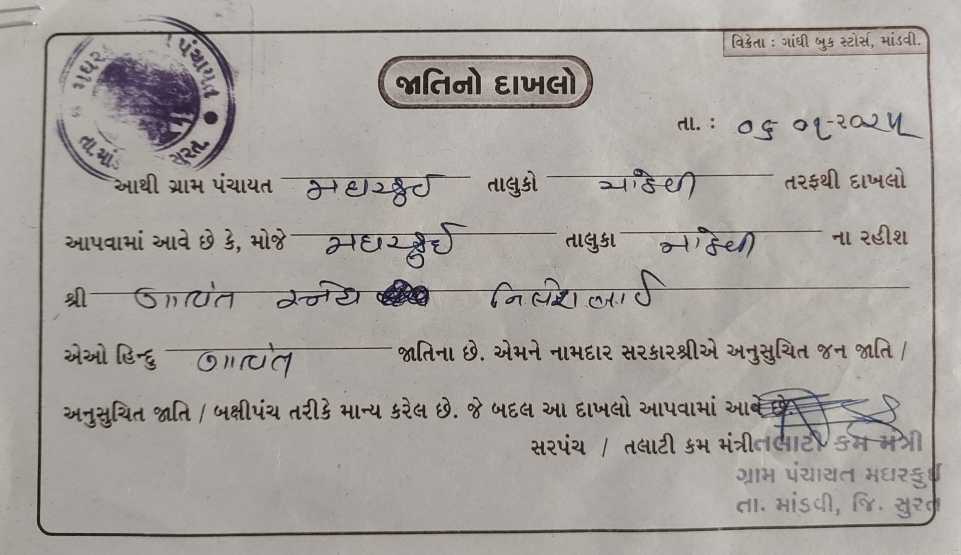 પંચાયત
તા. માં
સુરત.
વિક્રેતા : ગાંધી બુક સ્ટોર્સ, માંડવી.
જાતિનો દાખલો
તા. : ૦૬ ૦૧-૨૦૨૫
આથી ગ્રામ પંચાયત મધરકુઈ તાલુકો માંડવી તરફથી દાખલો
આપવામાં આવે છે કે, મોજે મધરકુઈ તાલુકા માંડવી ના રહીશ
શ્રી ગાવંત સ્નેહ નિલેશભાઈ
એઓ હિન્દુ ગાવંત જાતિના છે. એમને નામદાર સરકારશ્રીએ અનુસુચિત જન જાતિ /
અનુસુચિત જાતિ / બક્ષીપંચ તરીકે માન્ય કરેલ છે. જે બદલ આ દાખલો આપવામાં આવે છે.
સરપંચ / તલાટી કમ મંત્રી
તલાટી કમ મંત્રી
ગ્રામ પંચાયત મધરકુઈ
તા. માંડવી, જિ. સુરત